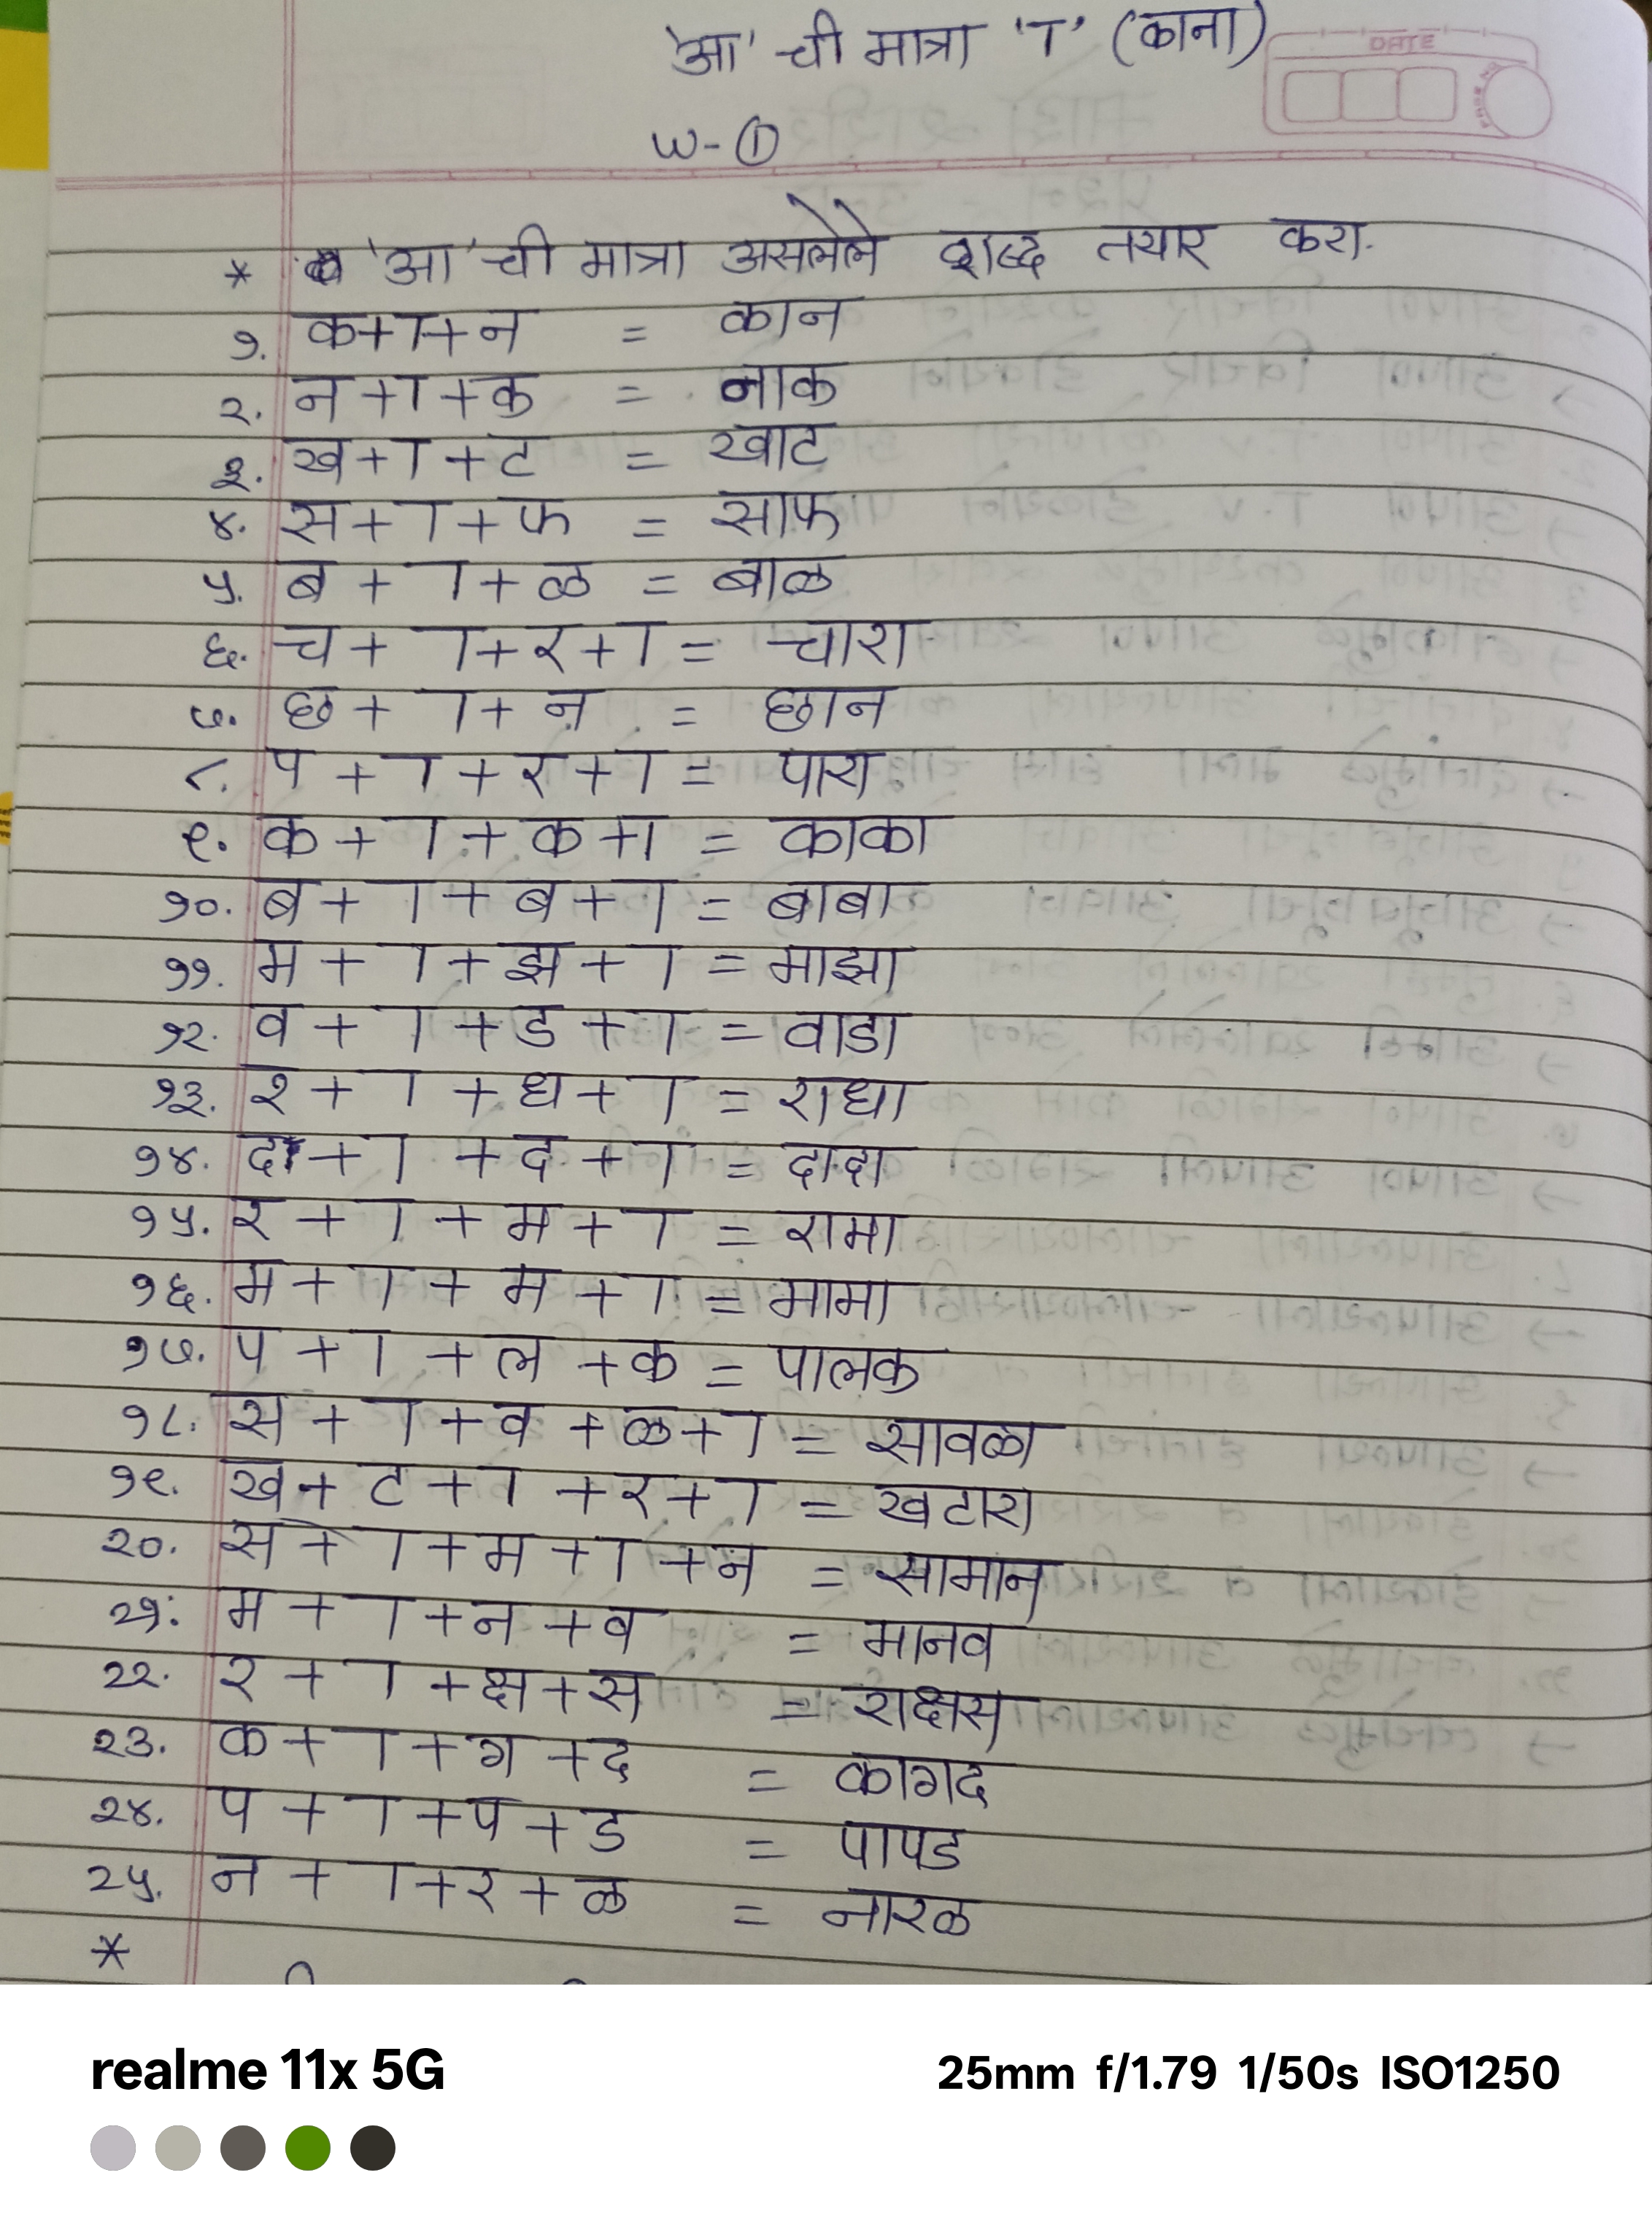 'आ' ची मात्रा 'ा' (काना)
DATE
PAGE NO
W-①
* 'आ' ची मात्रा असलेले शब्द तयार करा.
१. क+ा+न = कान
२. न+ा+क = नाक
३. ख+ा+ट = खाट
४. स+ा+फ = साफ
५. ब+ा+ळ = बाळ
६. च+ा+र+ा = चारा
७. छ+ा+न = छान
८. प+ा+र+ा = पारा
९. क+ा+क+ा = काका
१०. ब+ा+ब+ा = बाबा
११. म+ा+झ+ा = माझा
१२. व+ा+ड+ा = वाडा
१३. र+ा+ध+ा = राधा
१४. द+ा+द+ा = दादा
१५. र+ा+म+ा = रामा
१६. म+ा+म+ा = मामा
१७. प+ा+ल+क = पालक
१८. स+ा+व+ळ+ा = सावळा
१९. ख+ट+ा+र+ा = खटारा
२०. स+ा+म+ा+न = सामान
२१. म+ा+न+व = मानव
२२. र+ा+क्ष+स = राक्षस
२३. क+ा+ग+द = कागद
२४. प+ा+प+ड = पापड
२५. न+ा+र+ळ = नारळ
*
realme 11x 5G
25mm f/1.79 1/50s ISO1250